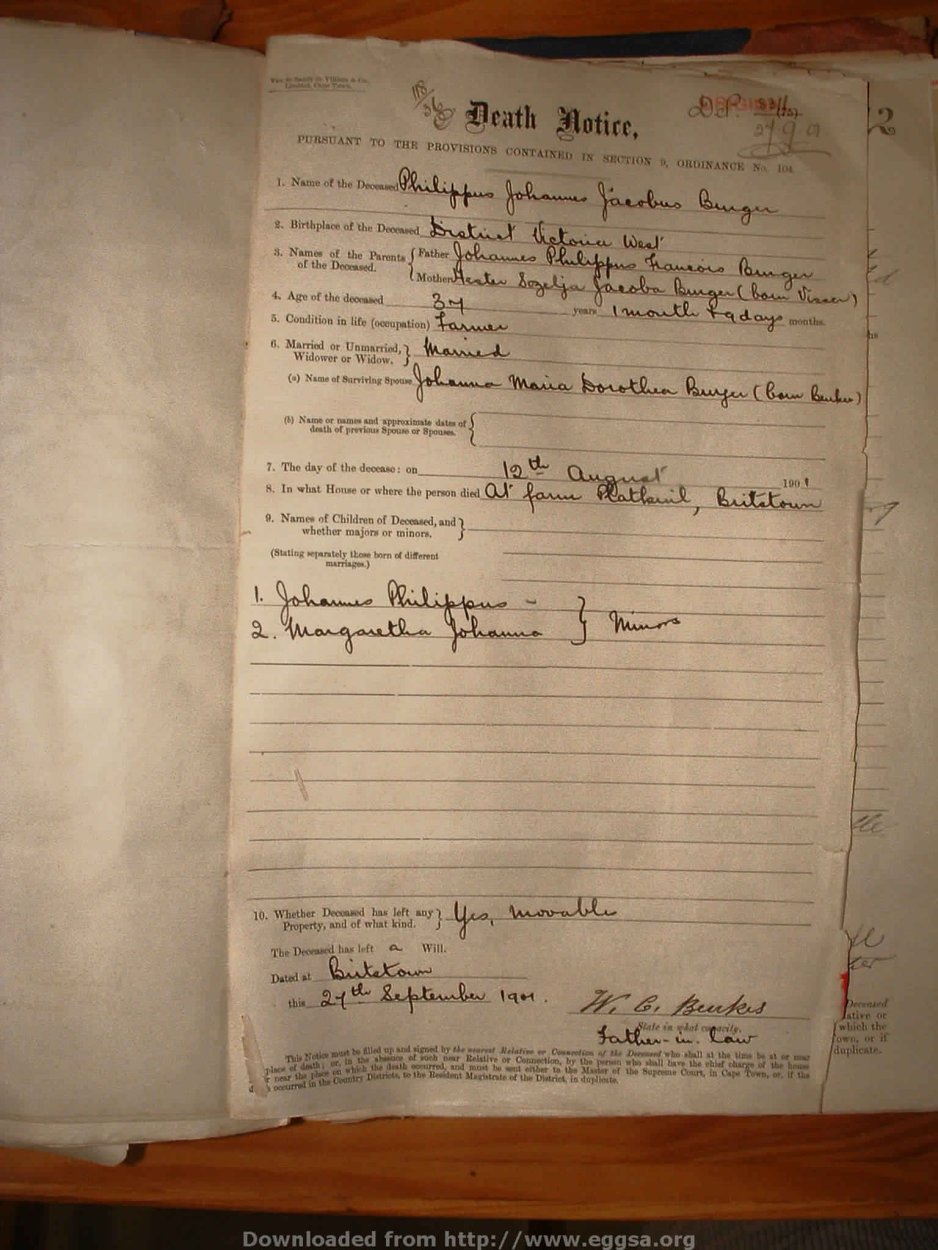 Van de Sandt de Villiers & Co.
Limited, Cape Town.
Death Notice,
PURSUANT TO THE PROVISIONS CONTAINED IN SECTION 9, ORDINANCE No. 104.
1. Name of the Deceased Philippus Johannes Jacobus Burger
2. Birthplace of the Deceased District Victoria West
3. Names of the Parents of the Deceased. { Father Johannes Philippus Francois Burger
Mother Hester Sozelja Jacoba Burger (born Visser)
4. Age of the deceased 37 years 1 month & 9 days months.
5. Condition in life (occupation) Farmer
6. Married or Unmarried, Widower or Widow. } Married
(a) Name of Surviving Spouse Johanna Maria Dorothea Burger (born Beukes)
(b) Name or names and approximate dates of death of previous Spouse or Spouses. {
7. The day of the decease: on 12th August 1901
8. In what House or where the person died At farm Platkuil, Britstown
9. Names of Children of Deceased, and whether majors or minors. }
(Stating separately those born of different marriages.)
1. Johannes Philippus -
2. Margaretha Johanna } Minors
10. Whether Deceased has left any Property, and of what kind. } Yes, movable
The Deceased has left a Will.
Dated at Britstown
this 27th September 1901.
W. C. Beukes
State in what capacity.
Father-in-law
This Notice must be filled up and signed by the nearest Relative or Connection of the Deceased who shall at the time be at or near
place of death; or, in the absence of such near Relative or Connection, by the person who shall have the chief charge of the house
r near the place on which the death occurred, and must be sent either to the Master of the Supreme Court, in Cape Town, or, if the
occurred in the Country Districts, to the Resident Magistrate of the District, in duplicate.
Deceased
lative or
which the
own, or if
duplicate.
Downloaded from http://www.eggsa.org